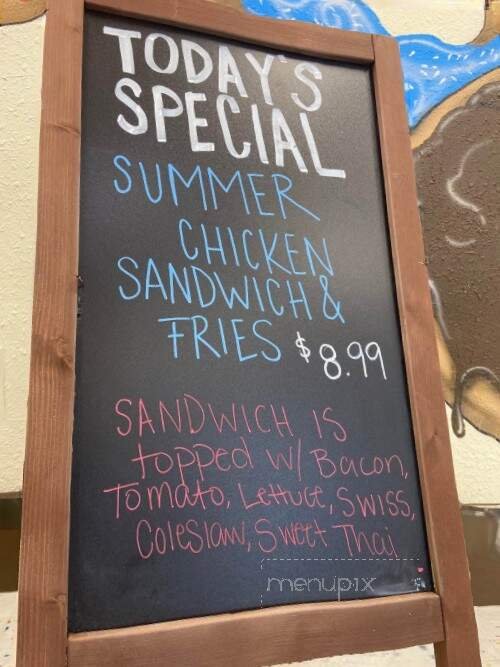 TODAY'S
SPECIAL
SUMMER
CHICKEN
SANDWICH &
FRIES $8.99
SANDWICH IS
topped w/ Bacon,
Tomato, Lettuce, Swiss,
Coleslaw, Sweet Thai
menupix